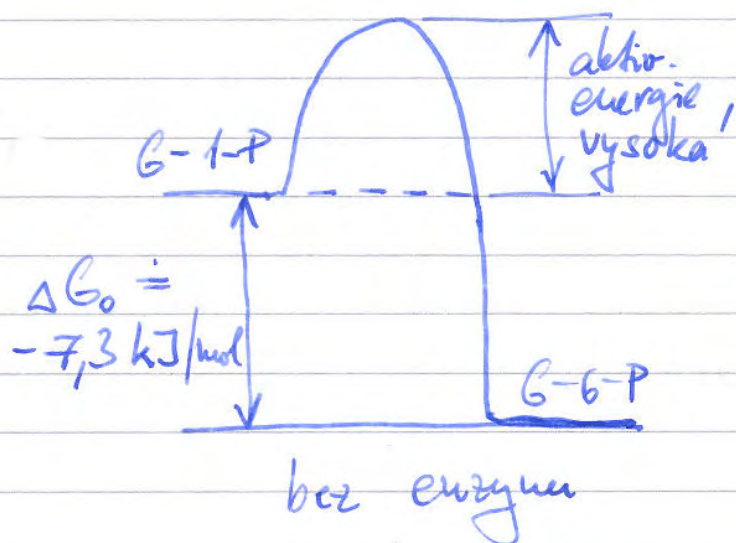 aktiv.
energie
vysoká
G-1-P
ΔG₀ ≐
-7,3 kJ/mol
G-6-P
bez enzymu